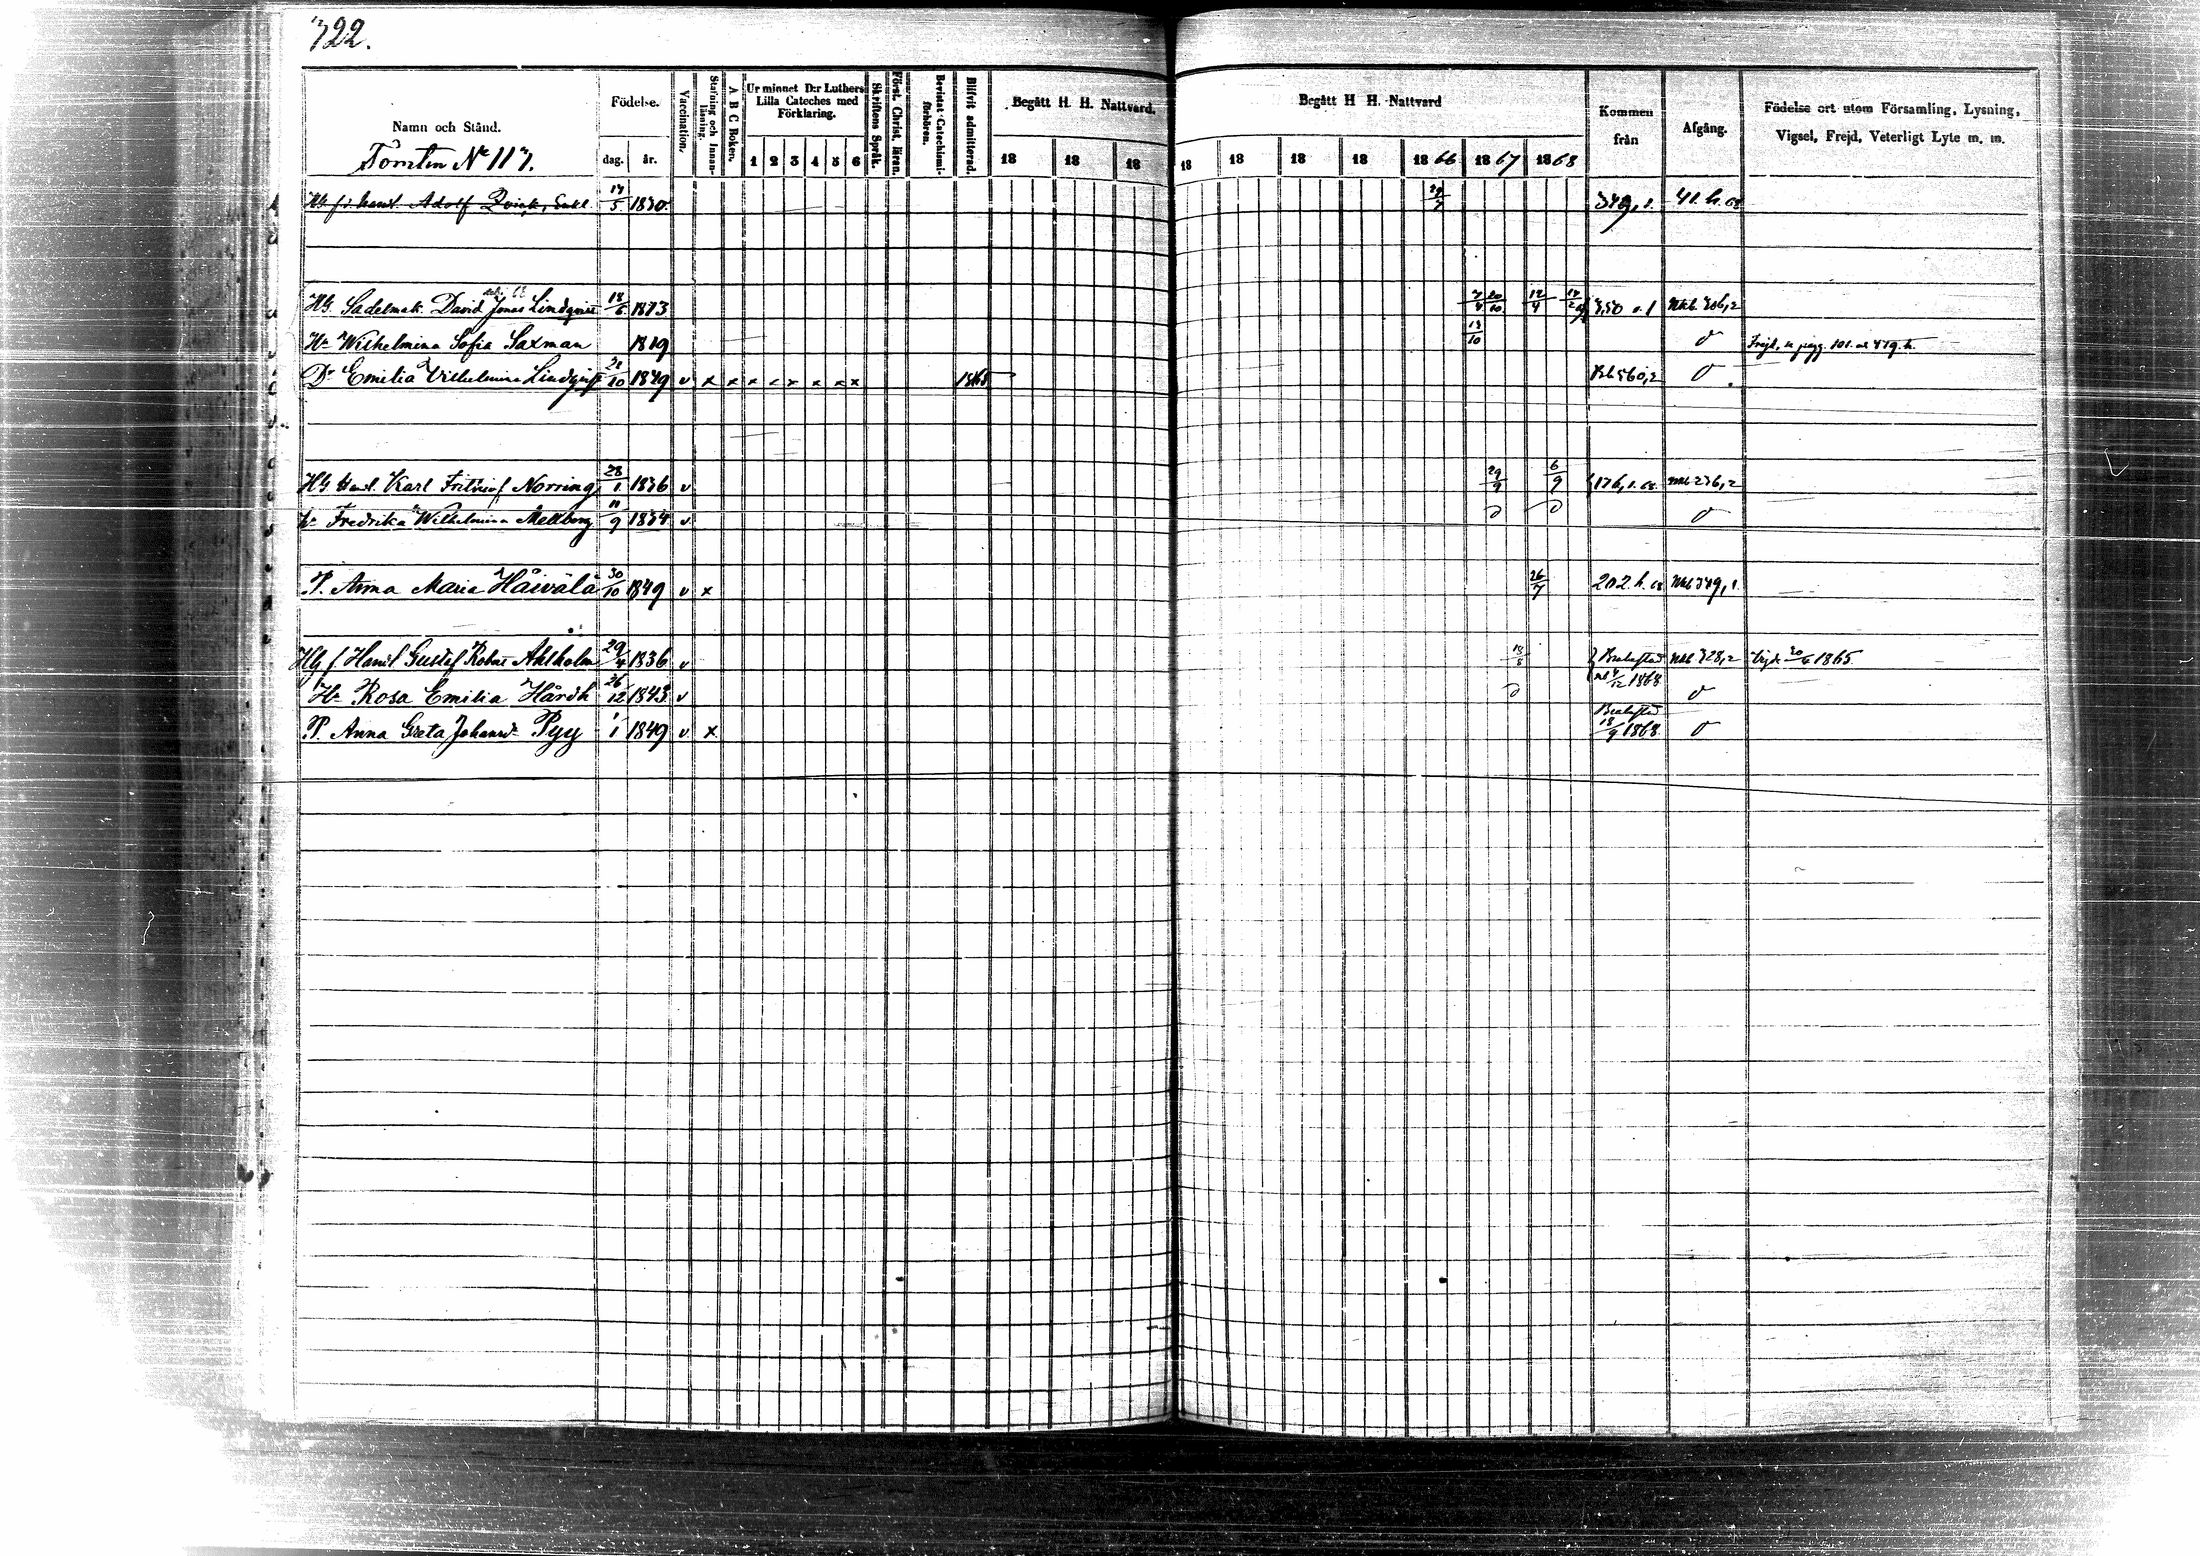 722.
Namn och Stånd.
Tomten No 117.
Födelse.
dag. år.
Vaccination.
Stafning och Innanläsning.
A B C Boken.
Ur minnet D:r Luthers Lilla Cateches med Förklaring.
1 2 3 4 5 6
Skriftens Språk.
Först. Christ. läran.
Bevistat Catechismiförhören.
Blifvit admitterad.
Begått H. H. Nattvard.
18 18 18
Begått H. H. Nattvard
18 18 18 18 1866 1867 1868
Kommen från
Afgång.
Födelse ort utom Församling, Lysning, Vigsel, Frejd, Veterligt Lyte m. m.
Adolf Enkl. 5 1830 349,1. 41.h.68
Hg. Sadelmak. David Jonas Lindqvist 18/6 1813 12/4
Hu Wilhelmina Sofia Saxman 1819 13/10
Dr Emilia Vilhelmina Lindqvist 1849 v x x x x x x x x 1865
Hg. Karl Fritiof Norring 28/1 1836 v 29/9 6/9 176,1.68 236,2
hu Fredrika Wilhelmina Mellberg 11/9 1834 v
P. Anna Maria Håivälä 30/10 1849 v x 26/7 202.h.68 349,1.
Hg f. Gustef Robert Ahlholm 29/4 1836 v 18/8 Brahestad 328,2 1865
12 1868
Hu Rosa Emilia Hårdh 26/12 1843 v
P. Anna Greta Johansd. Pyy 1/1 1849 v x Brahestad 18/9 1868